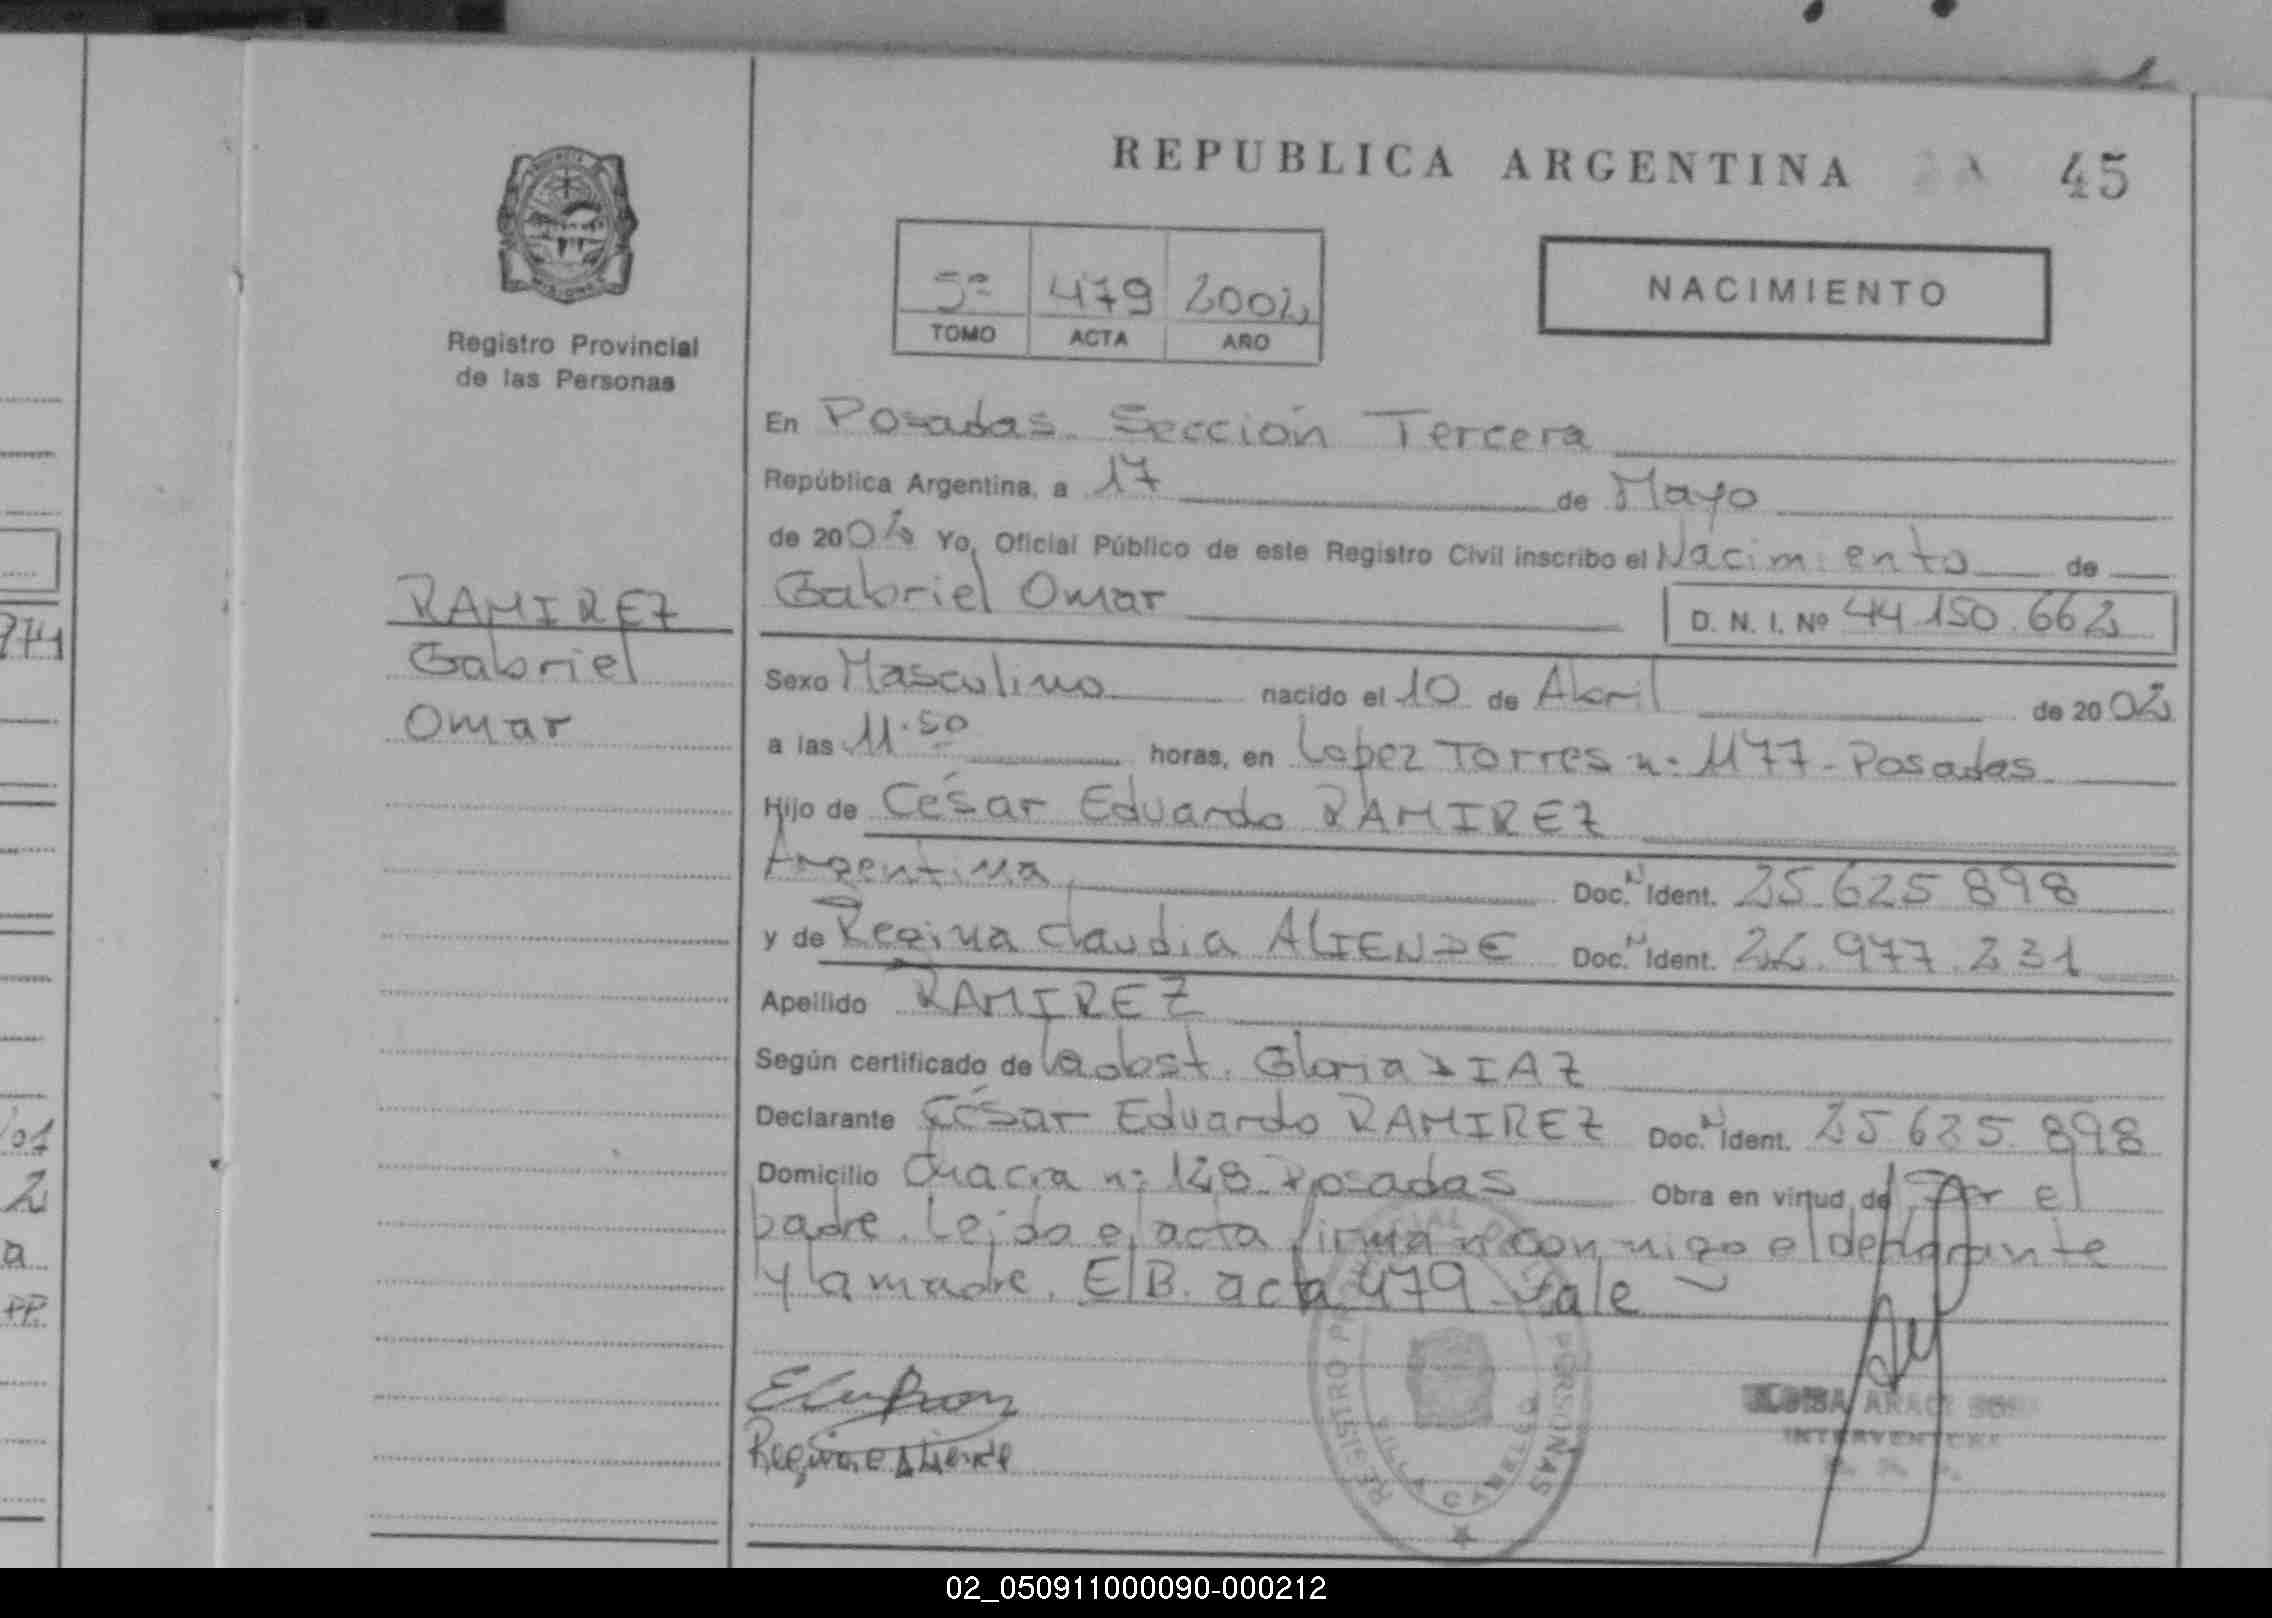 REPUBLICA ARGENTINA 45
5ª 479 2002
TOMO ACTA AÑO
NACIMIENTO
Registro Provincial
de las Personas
En Posadas. Sección Tercera
República Argentina, a 17 de Mayo
de 2002 Yo, Oficial Público de este Registro Civil inscribo el Nacimiento de
Gabriel Omar D. N. I. Nº 44.150.662
RAMIREZ
Gabriel
Omar
Sexo Masculino nacido el 10 de Abril de 2002
a las 11.50 horas, en Lopez Torres n: 1177 - Posadas
Hijo de César Eduardo RAMIREZ
Argentina Doc. N Ident. 25.625.898
y de Regina Claudia ALIENDE Doc. N Ident. 22.977.231
Apellido RAMIREZ
Según certificado de la obst. Gloria DIAZ
Declarante César Eduardo RAMIREZ Doc. N Ident. 25.625.898
Domicilio Chacra n: 128 Posadas Obra en virtud de Por el
padre. Leida el acta firman conmigo el declarante
y la madre. E/B. acta 479 Vale
REGISTRO PROVINCIAL PERSONAS
VILLA CABELLO
INTERVENTORA
974
2
a
PP.
02_050911000090-000212